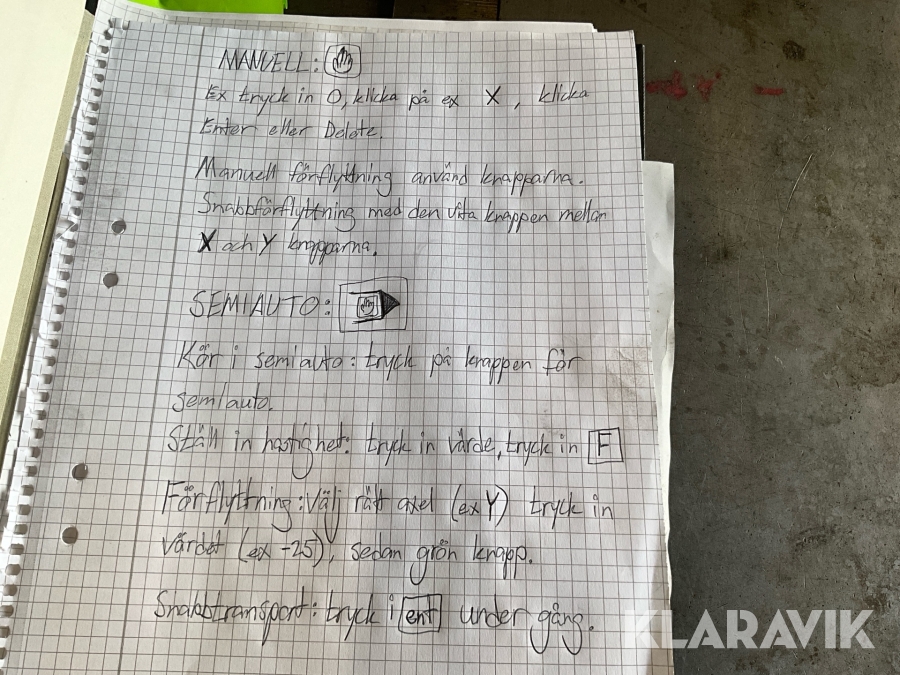 MANUELL:
Ex tryck in 0, klicka på ex X, klicka
Enter eller Delete.
Manuell förflyttning använd knapparna.
Snabbförflyttning med den vita knappen mellan
X och Y knapparna.
SEMIAUTO:
Kör i semiauto: tryck på knappen för
semiauto.
Ställ in hastighet: tryck in värde, tryck in F
Förflyttning: Välj rätt axel (ex Y) tryck in
värdet (ex -25), sedan grön knapp.
Snabbtransport: tryck i ent under gång.
KLARAVIK